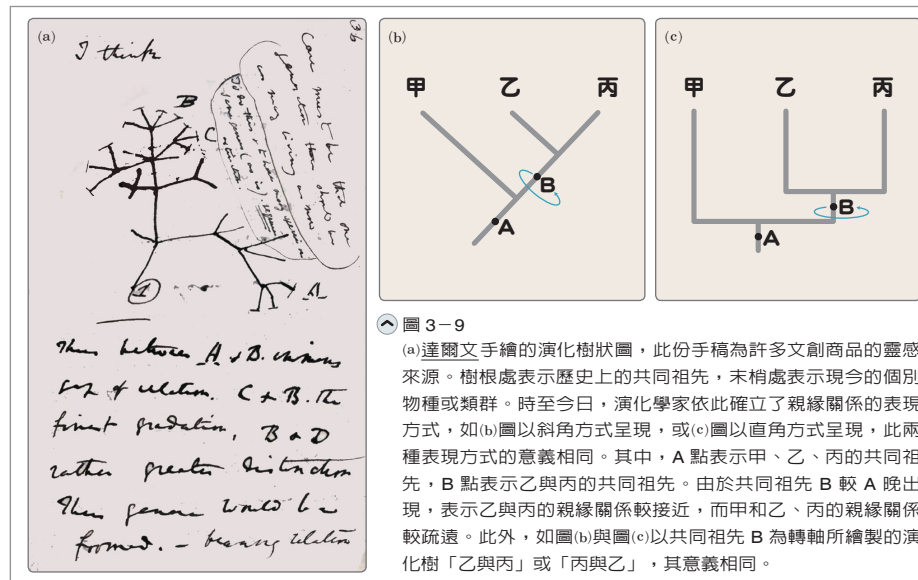 (a)
36
I think
Case must be that one
generation then should be
as many living as now
To do this & to have many species in
same genus (as is) requires
extinction
B
C
A
1
Thus between A & B. immense
gap of relation. C & B. the
finest gradation, B & D
rather greater distinction
Thus genera would be
formed. — bearing relation
(b)
甲 乙 丙
B
A
(c)
甲 乙 丙
B
A
圖 3-9
(a)達爾文手繪的演化樹狀圖，此份手稿為許多文創商品的靈感
來源。樹根處表示歷史上的共同祖先，末梢處表示現今的個別
物種或類群。時至今日，演化學家依此確立了親緣關係的表現
方式，如(b)圖以斜角方式呈現，或(c)圖以直角方式呈現，此兩
種表現方式的意義相同。其中，A 點表示甲、乙、丙的共同祖
先，B 點表示乙與丙的共同祖先。由於共同祖先 B 較 A 晚出
現，表示乙與丙的親緣關係較接近，而甲和乙、丙的親緣關係
較疏遠。此外，如圖(b)與圖(c)以共同祖先 B 為轉軸所繪製的演
化樹「乙與丙」或「丙與乙」，其意義相同。